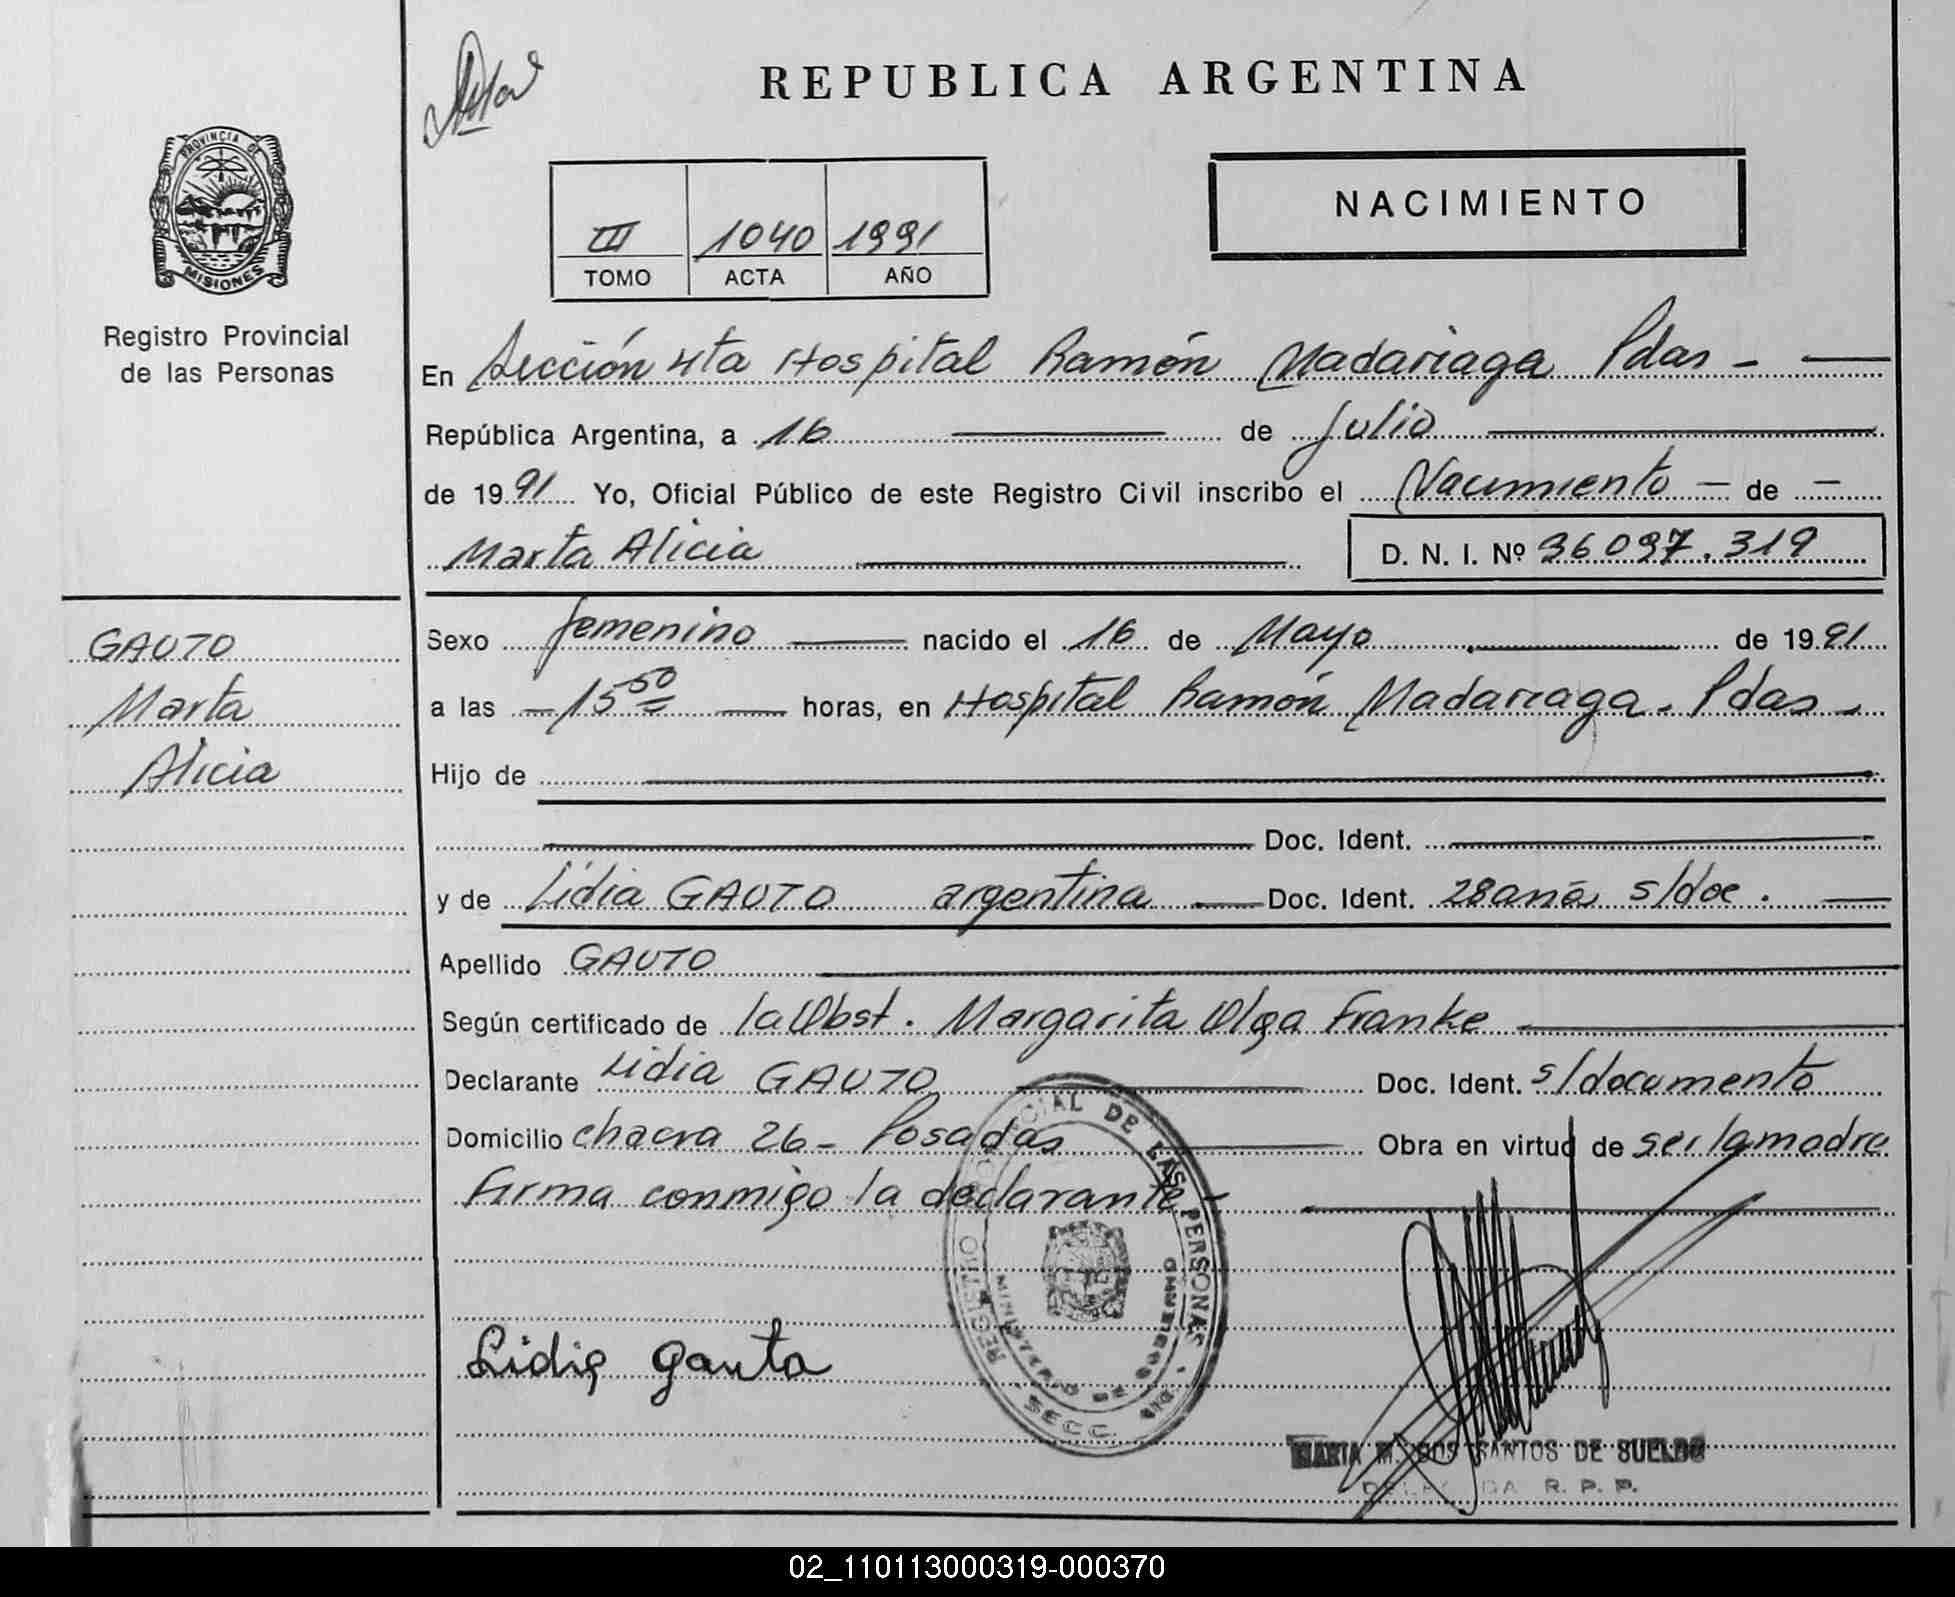 REPUBLICA ARGENTINA
PROVINCIA DE
MISIONES
Registro Provincial
de las Personas
III 1040 1991
TOMO ACTA AÑO
NACIMIENTO
En Sección 4ta Hospital Ramón Madariaga Pdas -
República Argentina, a 16 de Julio
de 1991 Yo, Oficial Público de este Registro Civil inscribo el Nacimiento - de -
Marta Alicia D. N. I. Nº 36.097.319
GAUTO
Marta
Alicia
Sexo femenino nacido el 16 de Mayo de 1991
a las - 15 50 horas, en Hospital Ramón Madariaga. Pdas -
Hijo de
Doc. Ident.
y de Lidia GAUTO argentina Doc. Ident. 28 años s/doc.
Apellido GAUTO
Según certificado de la Obst. Margarita Olga Franke
Declarante Lidia GAUTO Doc. Ident. s/documento
Domicilio chacra 26 - Posadas Obra en virtud de ser la madre
Firma conmigo la declarante -
Lidia gauto
REGISTRO PROVINCIAL DE LAS PERSONAS
MINISTERIO DE GOBIERNO
SECC
MARIA M. DOS SANTOS DE SUELDO
DELEGADA R. P. P.
02_110113000319-000370